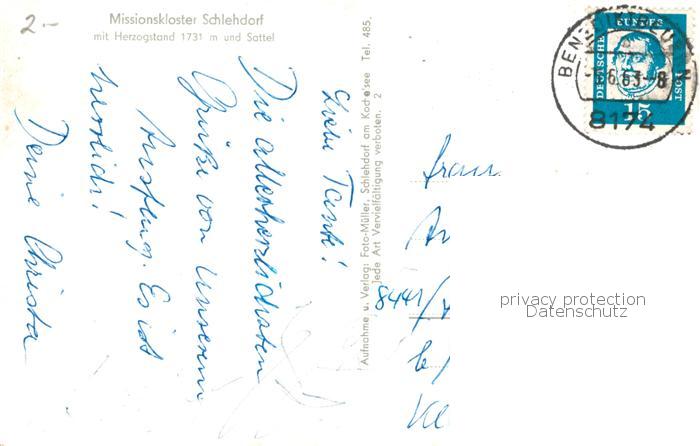 2.-
Missionskloster Schlehdorf
mit Herzogstand 1731 m und Sattel
Liebe Tante!
Die allerherzlichsten
Grüße von unserem
Ausflug. Es ist
herrlich!
Deine Christa
Aufnahme u. Verlag: Foto-Müller, Schlehdorf am Kochelsee Tel. 485.
Jede Art Vervielfältigung verboten. 2
DEUTSCHE BUNDESPOST
15
63-8
8174
Frau
8441/
privacy protection
Datenschutz